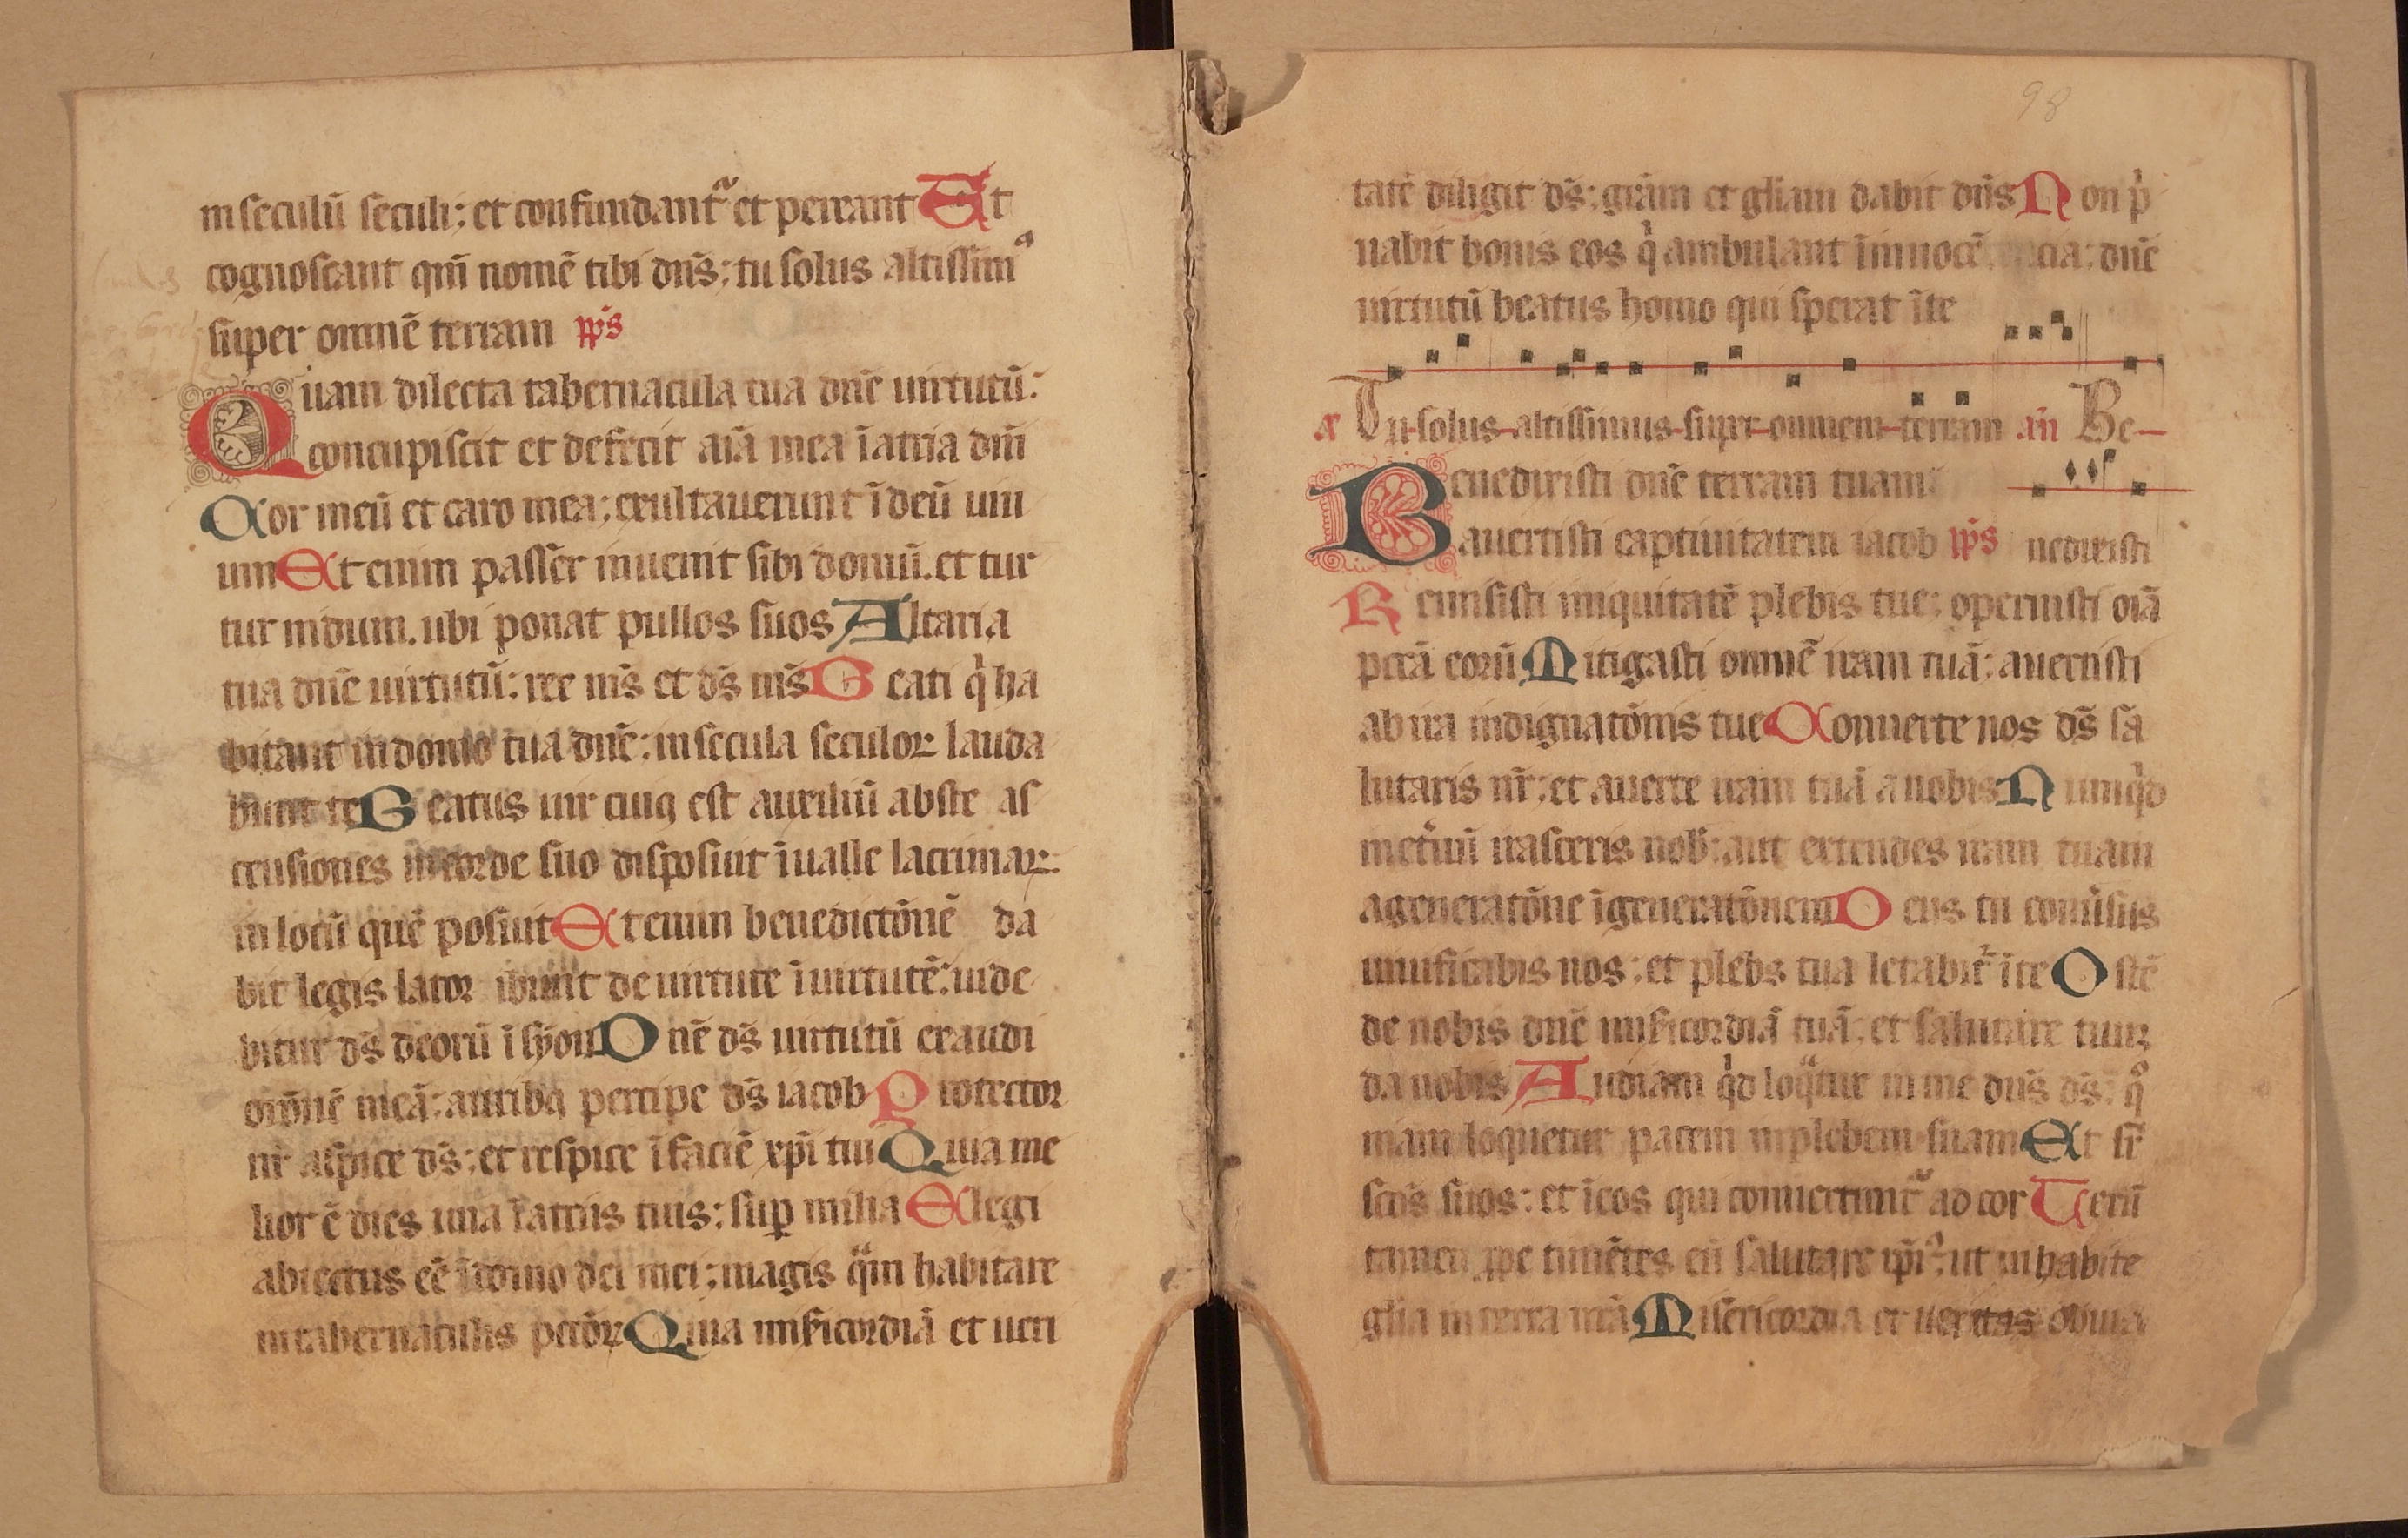 in seculū seculi; et confundant᷑ et pereant Et
cognoscant qm̄ nomē tibi dn̄s; tu solus altissimꝰ
super omnē terram ps̄
Quam dilecta tabernacula tua dn̄e uirtutū:
concupiscit et defecit aīa mea ī atria dn̄i
Cor meū et caro mea; exultauerunt ī deū uiu
um Et enim passer inuenit sibi domū. et tur
tur nidum. ubi ponat pullos suos Altaria
tua dn̄e uirtutū: rex ms̄ et ds̄ ms̄ Beati qͥ ha
bitant in domo tua dn̄e: in secula seculoꝝ lauda
bunt te Beatus uir cuiꝰ est auxiliū abs te as
censiones in corde suo disposuit ī ualle lacrimaꝝ
in locū quē posuit Et enim benedictōnē da
bit legis lator ibunt de uirtute ī uirtutē: uide
bitur ds̄ deorū ī syon Dn̄e ds̄ uirtutū exaudi
orōnē meā: auribꝰ percipe ds̄ iacob Protector
nr̄ aspice ds̄; et respice ī faciē xp̄i tui Quia me
lior ē dies una ī atriis tuis: suꝑ milia Elegi
abiectus eē ī domo dei mei; magis qͣm habitare
in tabernaculis pctōꝝ Quia mīs̄icordiā et ueri
98
tatē diligit ds̄: grām et gl̄iam dabit dn̄s Non pͥ
uabit bonis eos qͥ ambulant ī innocē cia: dn̄e
uirtutū beatus homo qui sperat ī te
Tu solus altissimus super omnem terram an̄ Be
Benedixisti dn̄e terram tuam
auertisti captiuitatem iacob ps̄ nedixisti
Remisisti iniquitatē plebis tue: operuisti oīa
pctā eorū Mitigasti omnē iram tuā: auertisti
ab ira indignatōnis tue Conuerte nos ds̄ sa
lutaris nr̄: et auerte iram tuā a nobis Numqͥd
īnetͥnū irasceris nob̄: aut extendes iram tuam
a generatōne ī generatōnem Deus tu conūsus
uiuificabis nos: et plebs tua letabit᷑ ī te Ostē
de nobis dn̄e mīs̄icordiā tuā: et salutare tuum
da nobis Audiam qͥd loqͣtur in me dn̄s ds̄: qͦ
niam loquetur pacem in plebem suam Et sr̄
sc̄os suos: et ī eos qui conuertunt᷑ ad cor Uerū
tamen ꝓpe timētes eū salutare ip̄iꝰ: ut inhabite
gl̄ia in terra nr̄a Misericordia et ueritas obuia